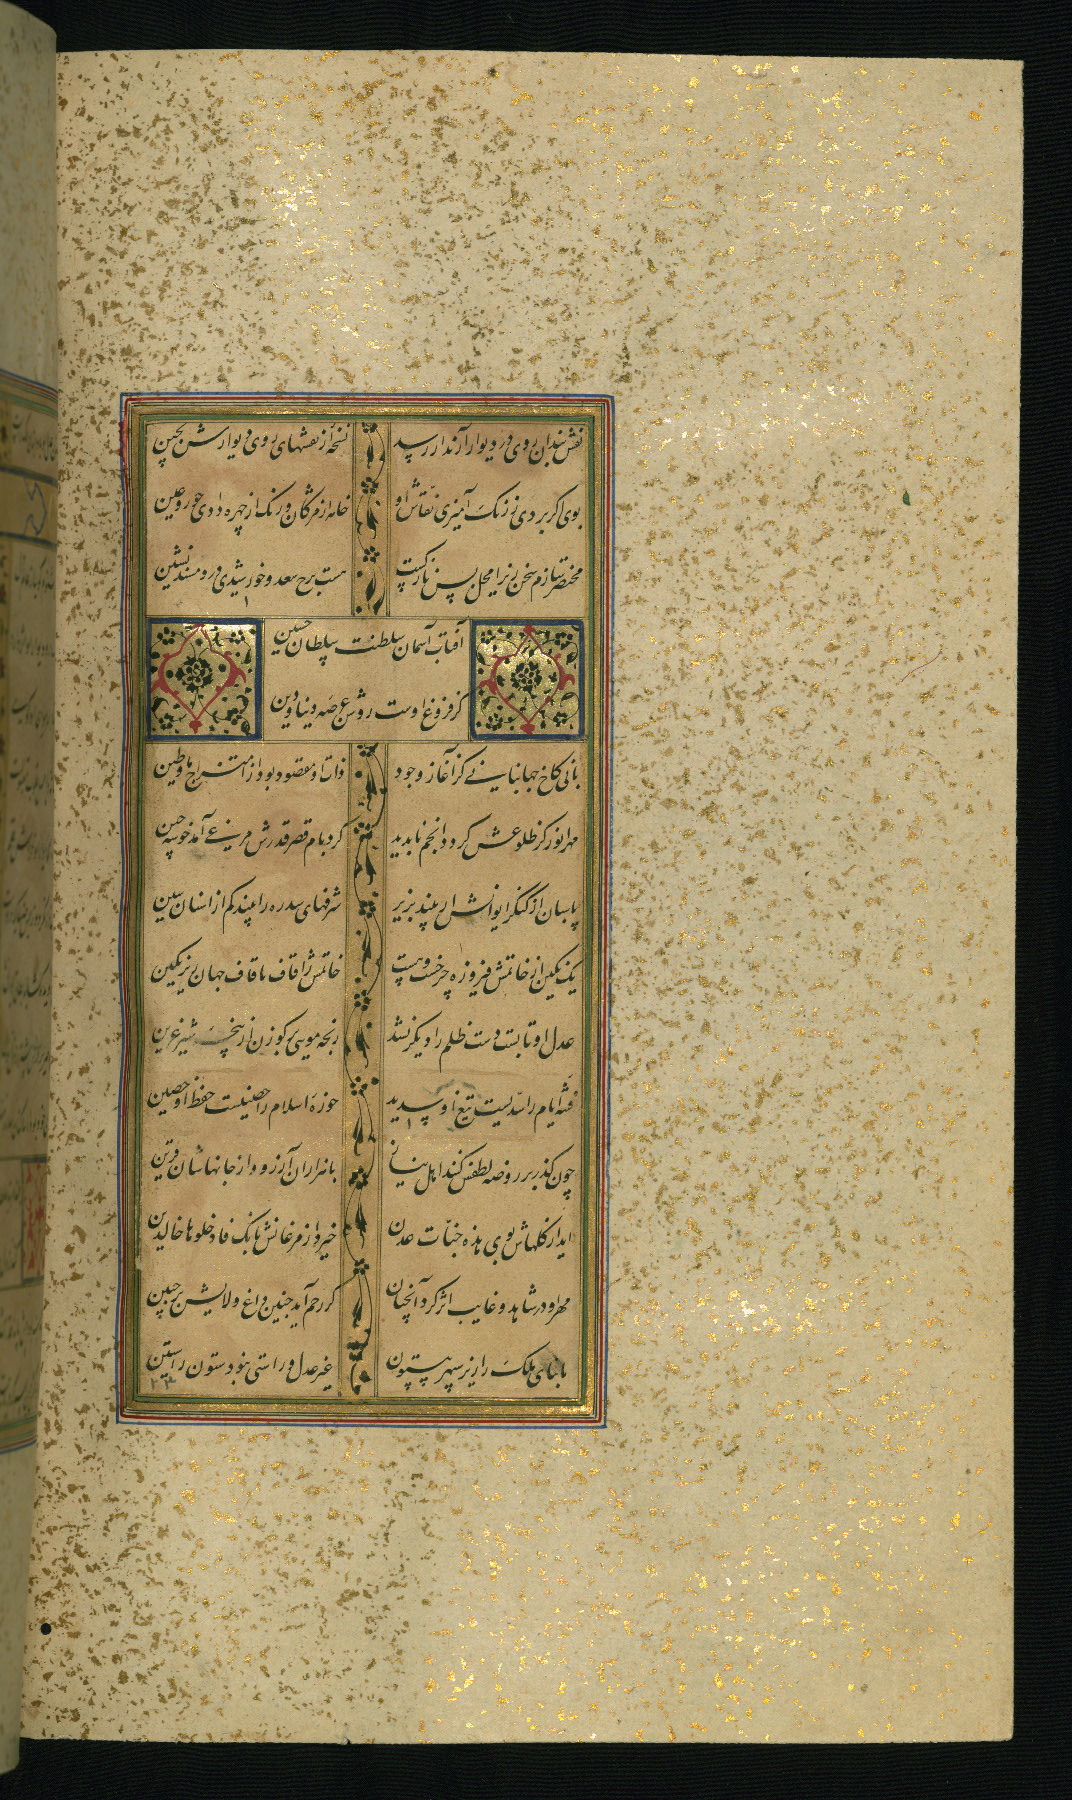 نقش بندان روی در دیوار آرندار رسد نسخه از نقشهای روی دیوارش بچین
بوی اگر بردی ز رنگ آمیزی نقاش او خامه از مژگان و رنگ از چهره دادی حور عین
مختصر سازم سخن زیرا محل بس نازکست هست برج سعد و خورشیدی درو مسند نشین
آفتاب آسمان سلطنت سلطان حسین
کز فروغ اوست روشن عرصه دنیا و دین
بانی کاخ جهانبانی کز آغاز وجود ذات او مقصود بود از امتزاج ما و طین
مهر انور کز طلوعش کرد و انجم ناپدید کرد بام قصر قدرش مرغی آمد خوشه چین
پاسبان از کنگر ایوانش ار بیند بزیر شرفهای سدره را بیند کم از اسنان سین
یک نگین از خاتمش فیروزه چرخست و هست خاتمش را قاف تا قاف جهان زیر نگین
عدل او تا بست دست ظلم را دیگر نشد رنجه مویی بر گوزن از پنجه شیر عرین
فتنه ایام را سدیست تیغ او سدید حوزه اسلام را حصنیست حفظ او حصین
چون گذر بر روضه لطفش کند اهل نیاز با هزاران آرزو واز جانهاشان قرین
اید از گلهاش بوی هذه جنات عدن خیزد از مرغانش بانگ فادخلوها خالدین
مهر او در شاهد و غایب اثر کرد آنچنان کز رحم آید جنین داغ ولایش بر جبین
با بنای ملک را زیر سپهر بیستون غیر عدل و راستی نبود ستون راستین